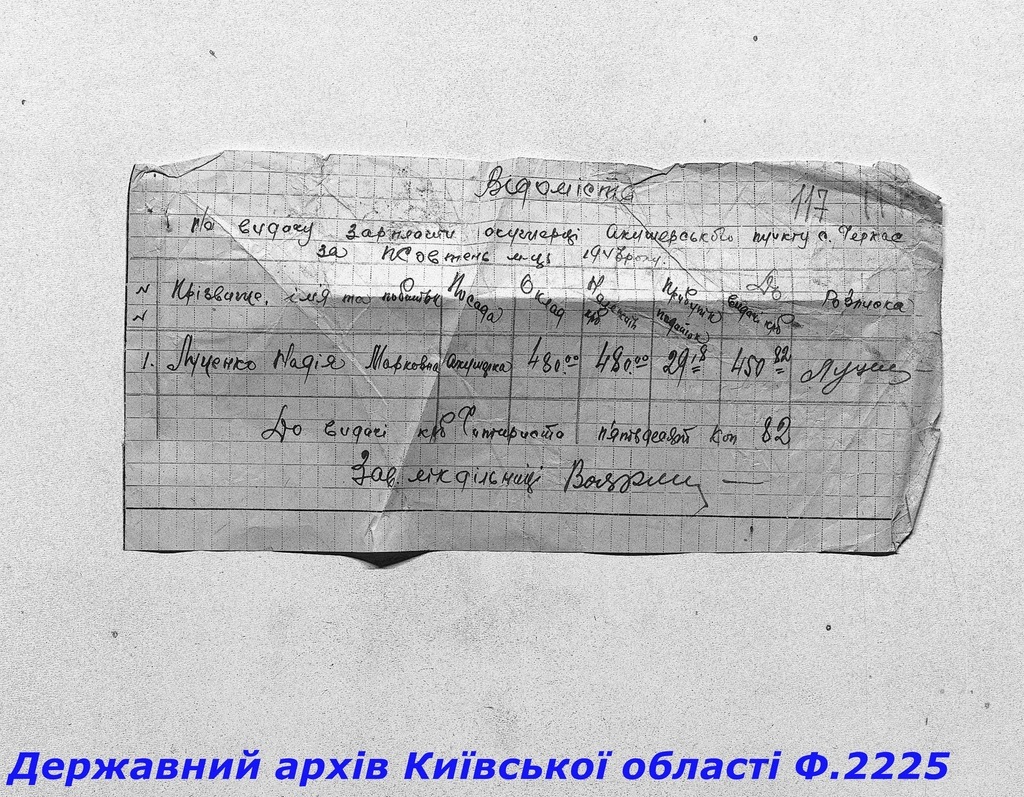 Відомість
117
На видачу зарплати акушерці Акушерського пункту с. Черкас
за Жовтень м-ць 1943 року.
N N Прізвище, імя та побатьк. Посада Оклад Належить крб Прибутк. податок До видачі крб Розписка
1. Луценко Надія Марковна Акушерка 480.00 480.00 29.18 450.82 Луцен
До видачі крб Чотириста пятьдесят коп 82
Зав. лікдільниці
Державний архів Київської області Ф.2225